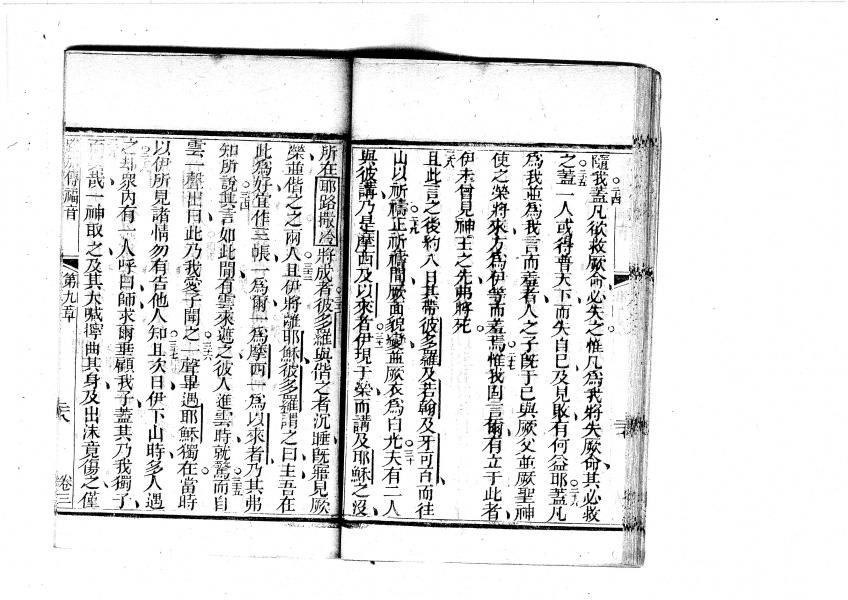 隨我蓋凡欲救厥命必失之惟凡爲我將失厥命其必救
之蓋一人或得普天下而失自己及見敗有何益耶蓋凡
爲我並爲我言而羞者人之子旣于己與厥父並厥聖神
使之榮將來方爲伊等而羞焉惟我固言爾有立于此者
伊未曾見神王之先弗將死
且此言之後約八日其帶彼多羅及若翰及牙可百而往
山以祈禱正祈禱間厥面貌變並厥衣爲白光夫有二人
與彼講乃是摩西及以來者伊現于榮而講及耶穌之沒
所在耶路撒冷將成者彼多羅與偕之者沉睡旣寤見厥
榮並偕之之兩人且伊將離耶穌彼多羅謂之曰主吾在
此爲好宜作三帳一爲爾一爲摩西一爲以來者乃其弗
知所說其言如此間有雲來遮之彼人進雲時就驚而自
雲一聲出曰此乃我愛子聞之一聲畢遇耶穌獨在當時
以伊所見諸情勿有告他人知且次日伊下山時多人遇
之却衆內有一人呼曰師求爾垂顧我子蓋其乃我獨子
哉一神取之及其大喊擰曲其身及出沫竟傷之僅
傳福音
第九章
卷三